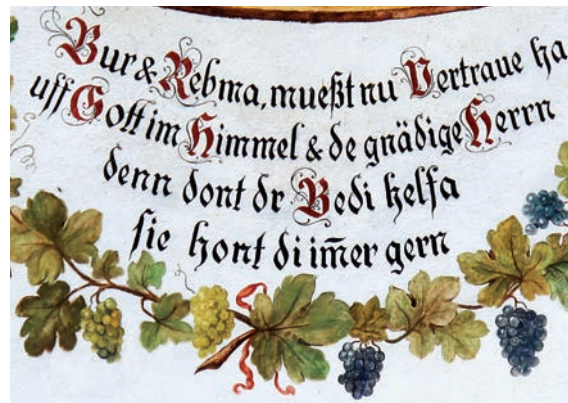 Bur & Rebma, mueßt nu Vertraue ha
uff Gott im Himmel & de gnädige Herrn
denn dont dr Bedi helfa
sie hont di im̄er gern